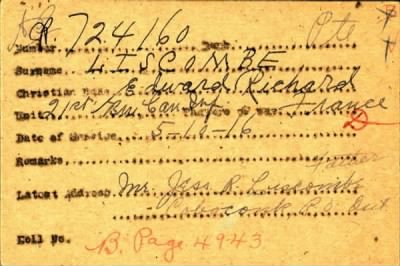 R. 724160 Pte
Number Rank
Surname LISCOMBE
Christian Name Edward Richard
Unit 21st Bn. Can. Inf. Theatre of War France
Date of Service 5-10-16 D
Remarks
Father
Latest Address Mr. Jess R. Luscombe
Coboconk R.D. Ont
Roll No. B. Page 4943